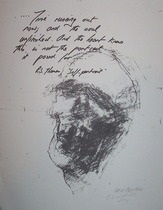 .... Time running out
now, and the soul
unfinished. And the heart knows
this is not the portrait
it posed for.
R.S. Thomas, Self-portrait